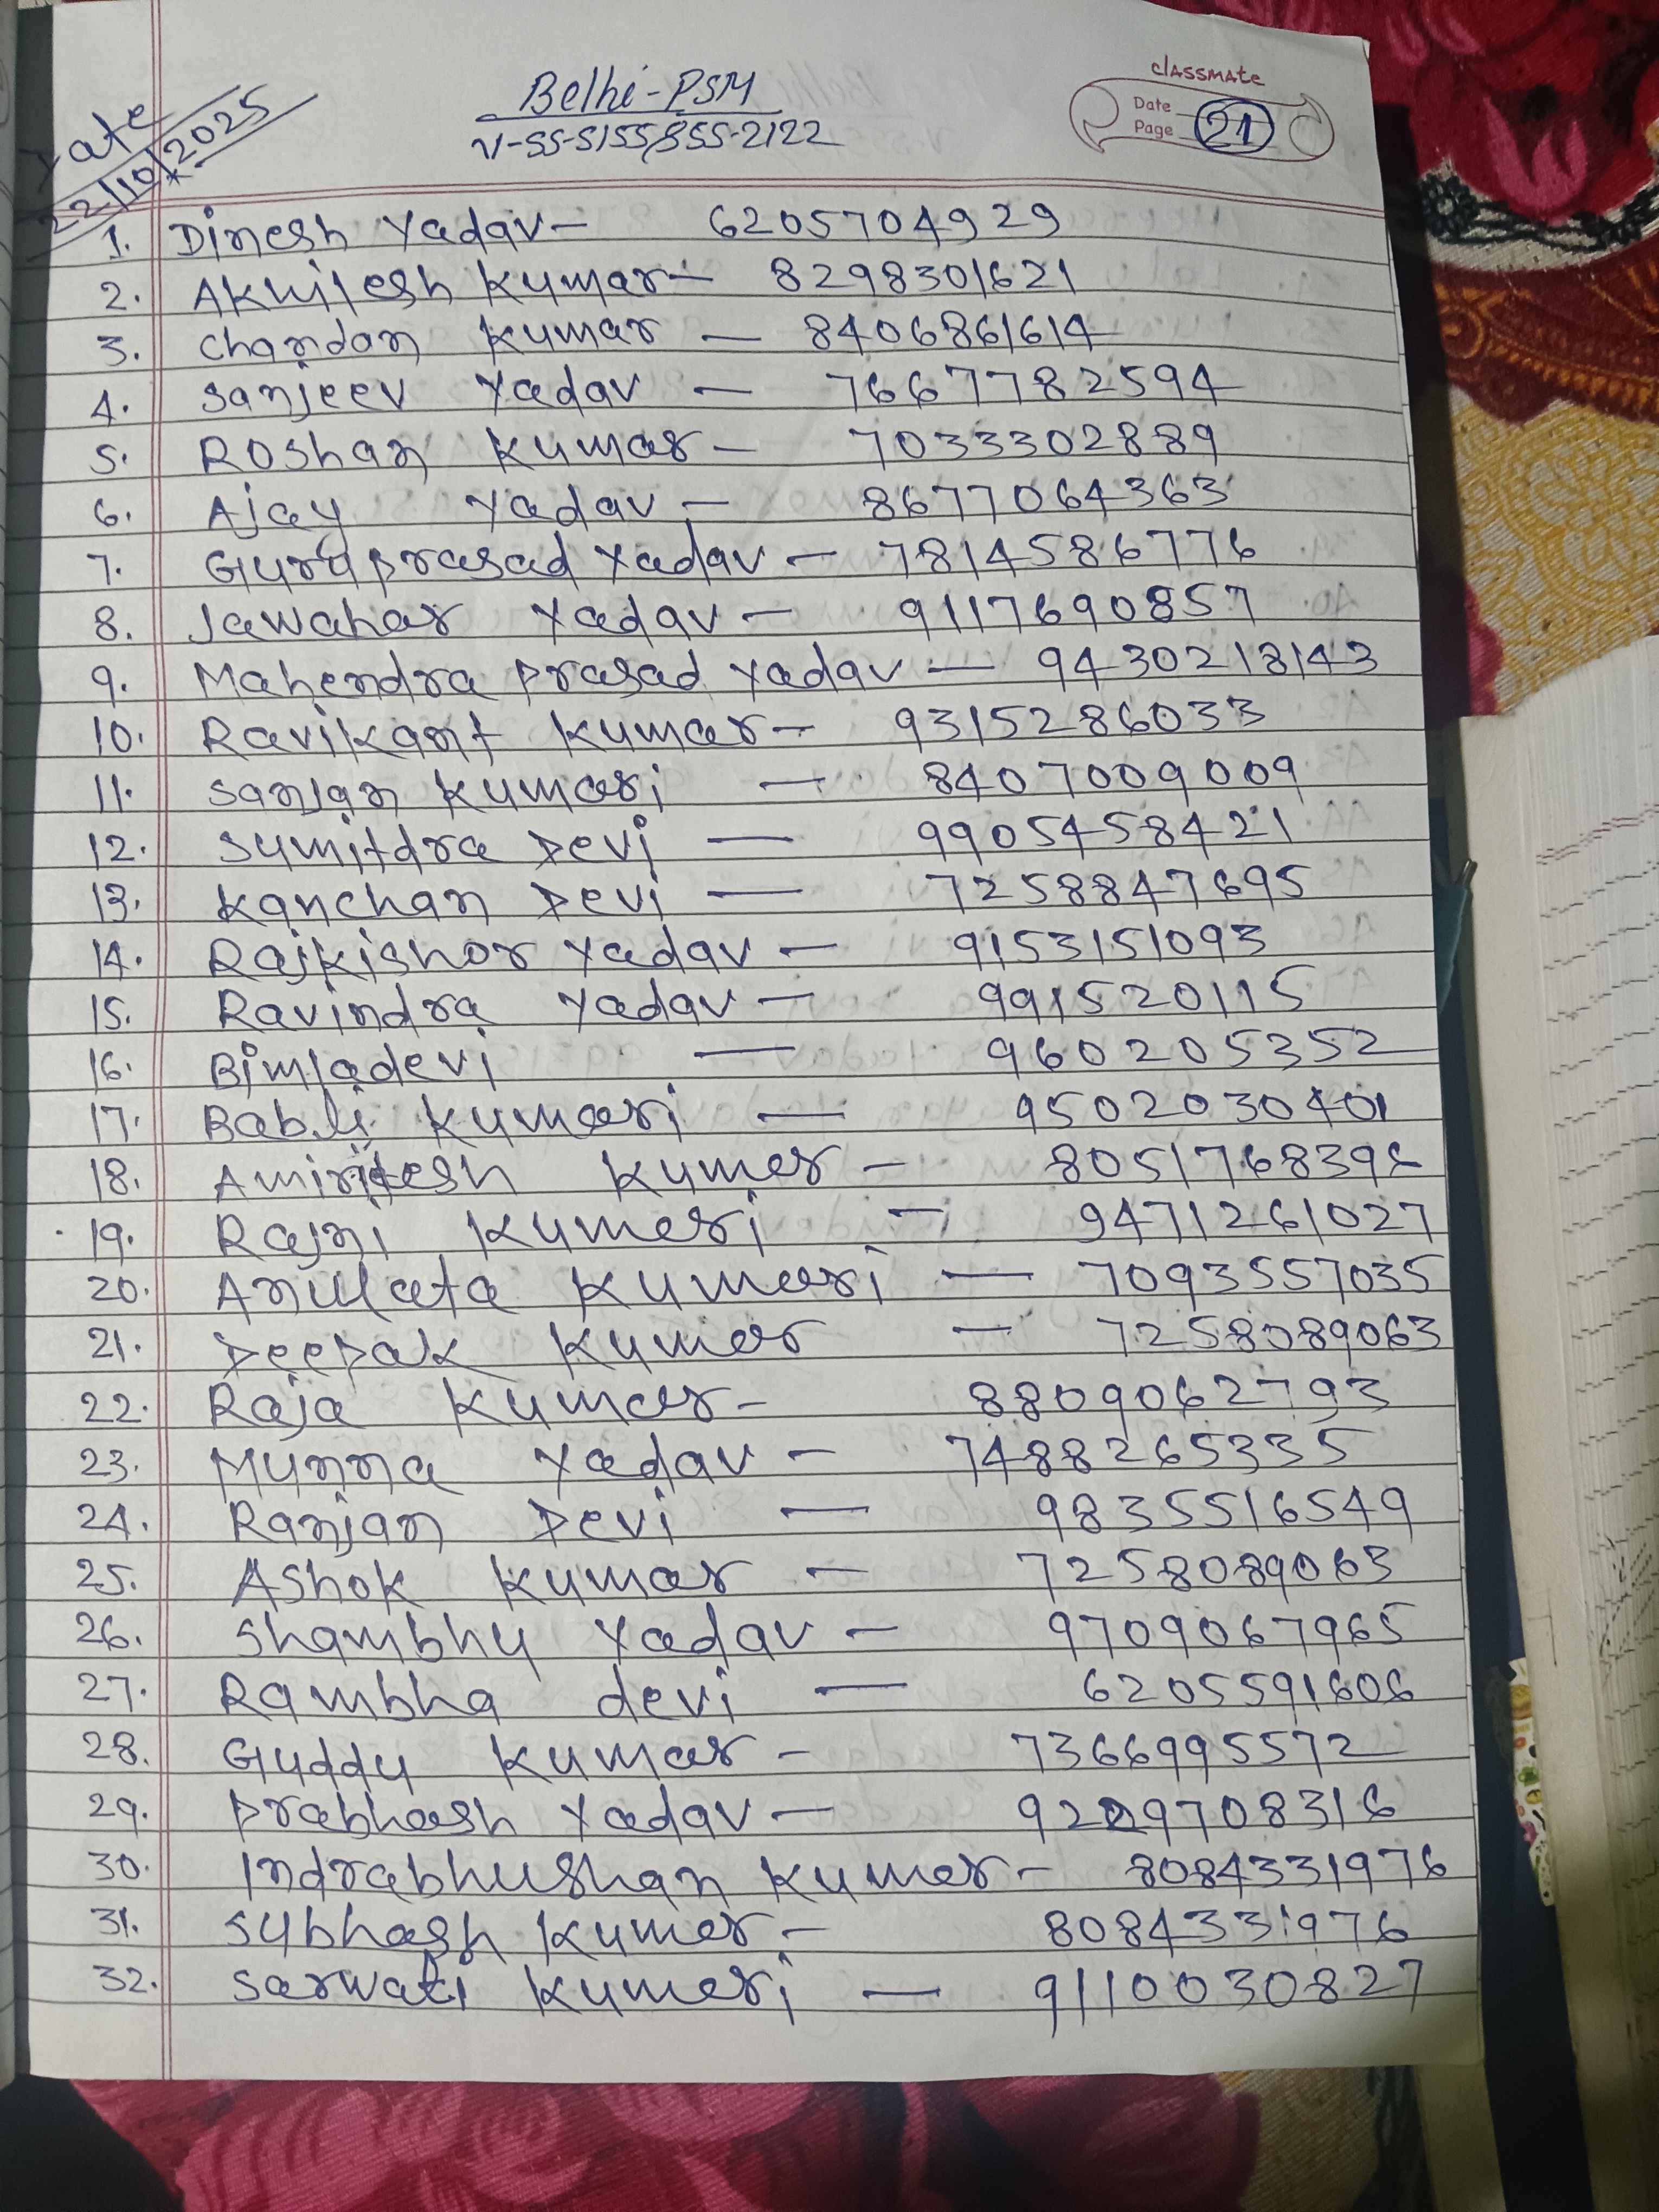 Belhi-PSM
classmate
Date
Page 21
V-SS-5155/855-2122
Date
22/10/2025
1. Dinesh Yadav- 6205704929
2. Akhilesh Kumar- 8298301621
3. Chandan Kumar - 8406861614
4. Sanjeev Yadav - 7667782594
5. Roshan Kumar - 7033302889
6. Ajay Yadav - 8677064363
7. Guruprasad Yadav - 7814586776
8. Jawahar Yadav - 9117690857
9. Mahendra prasad Yadav - 9430218143
10. Ravikant Kumar - 9315286033
11. Sanjan Kumari - 8407009009
12. Sumitdra Devi - 9905458421
13. Kanchan Devi - 7258847695
14. Rajkishor Yadav - 9153151093
15. Ravindra Yadav - 991520115
16. Bimladevi - 960205352
17. Babli Kumari - 9502030401
18. Kumar - 8051768396
19. Rajni Kumari - 9471261027
20. Anulata Kumari - 7093557035
21. Deepak Kumar - 7258089063
22. Raja Kumar - 8809062793
23. Munna Yadav - 7488265335
24. Ranjan Devi - 9835516549
25. Ashok Kumar - 7258089063
26. Shambhu Yadav - 9709067965
27. Rambha devi - 6205591606
28. Guddu Kumar - 7366995572
29. Prabhash Yadav - 9229708316
30. Indrabhushan Kumar - 8084331976
31. Subhash Kumar - 8084331976
32. Sarwati Kumari - 9110030827